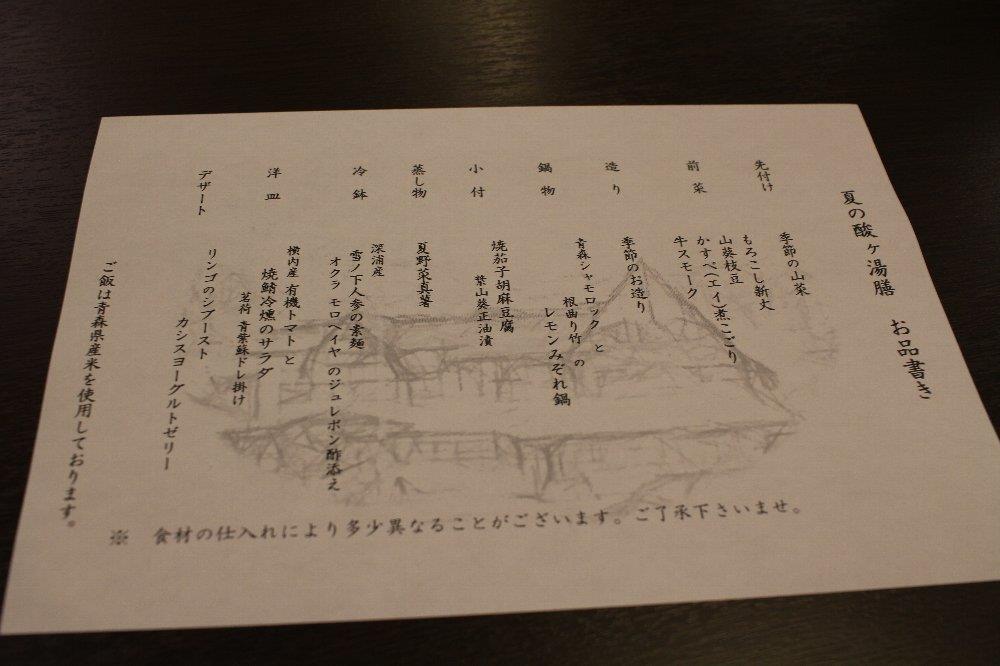 夏の酸ヶ湯膳 お品書き
先付け 季節の山菜
前菜 もろこし新丈
山葵枝豆
かすべ(エイ)煮こごり
牛スモーク
造り 季節のお造り
鍋物 青森シャモロックと
根曲り竹の
レモンみぞれ鍋
小付 焼茄子胡麻豆腐
葉山葵正油漬
蒸し物 夏野菜真薯
冷鉢 深浦産
雪ノ下人参の素麺
オクラ モロヘイヤのジュレポン酢添え
洋皿 横内産 有機トマトと
焼鯖冷燻のサラダ
茗荷 青紫蘇ドレ掛け
デザート リンゴのシブースト
カシスヨーグルトゼリー
ご飯は青森県産米を使用しております。
※ 食材の仕入れにより多少異なることがございます。ご了承下さいませ。